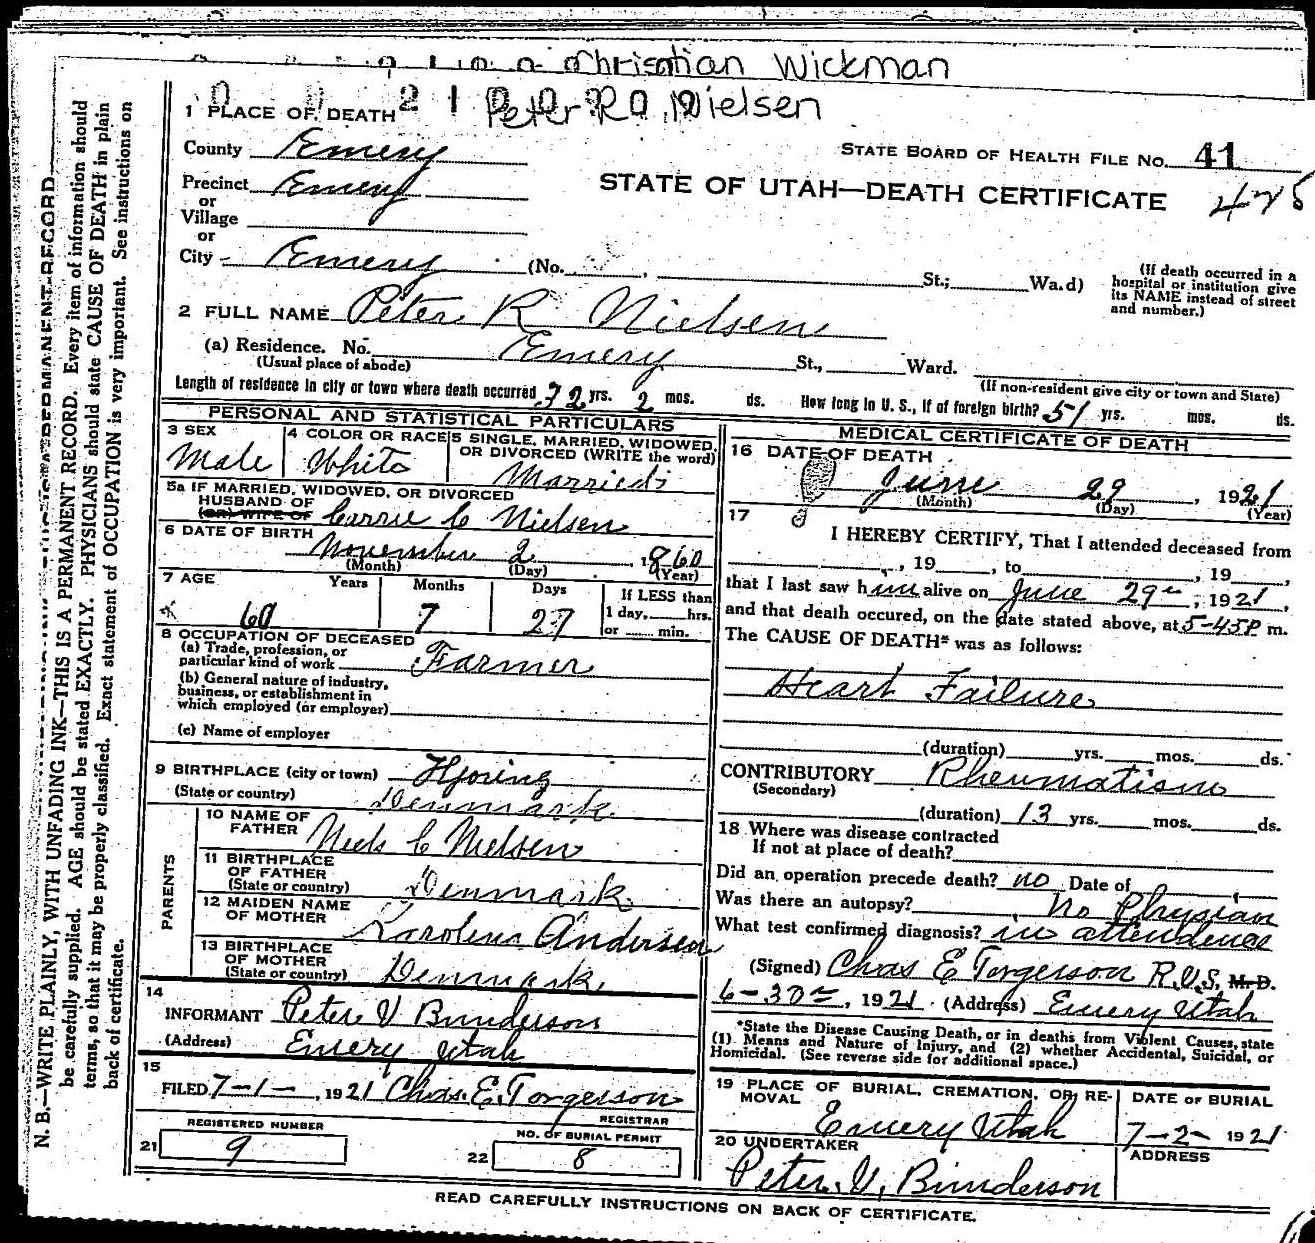 Christian Wickman
Peter R. Nielsen
1 PLACE OF DEATH
County Emery
STATE BOARD OF HEALTH FILE NO. 41
Precinct Emery
STATE OF UTAH—DEATH CERTIFICATE 475
or
Village
or
City Emery (No. , St.; Ward)
(If death occurred in a hospital or institution give its NAME instead of street and number.)
2 FULL NAME Peter R Nielsen
(a) Residence. No. Emery St., Ward.
(Usual place of abode) (If non-resident give city or town and State)
Length of residence in city or town where death occurred 32 yrs. 2 mos. ds. How long in U. S., if of foreign birth? 51 yrs. mos. ds.
PERSONAL AND STATISTICAL PARTICULARS
3 SEX Male
4 COLOR OR RACE White
5 SINGLE, MARRIED, WIDOWED, OR DIVORCED (WRITE the word) Married
5a IF MARRIED, WIDOWED, OR DIVORCED
HUSBAND OF
(OR) WIFE OF Carrie C Nielsen
6 DATE OF BIRTH November 2, 1860
(Month) (Day) (Year)
7 AGE Years Months Days If LESS than
60 7 27 1 day, hrs.
or min.
8 OCCUPATION OF DECEASED
(a) Trade, profession, or
particular kind of work Farmer
(b) General nature of industry,
business, or establishment in
which employed (or employer)
(c) Name of employer
9 BIRTHPLACE (city or town) Hjoring
(State or country) Denmark
PARENTS
10 NAME OF
FATHER Niels C Nielsen
11 BIRTHPLACE
OF FATHER
(State or country) Denmark
12 MAIDEN NAME
OF MOTHER Karolena Andersen
13 BIRTHPLACE
OF MOTHER
(State or country) Denmark
14
INFORMANT Peter V Bunderson
(Address) Emery Utah
15
FILED 7-1-, 1921 Chas. E. Torgerson
REGISTRAR
REGISTERED NUMBER
21 9
NO. OF BURIAL PERMIT
22 8
MEDICAL CERTIFICATE OF DEATH
16 DATE OF DEATH
June 29, 1921
(Month) (Day) (Year)
17
I HEREBY CERTIFY, That I attended deceased from
, 19 , to , 19 ,
that I last saw him alive on June 29, 1921,
and that death occured, on the date stated above, at 5-45P m.
The CAUSE OF DEATH* was as follows:
Heart Failure
(duration) yrs. mos. ds.
CONTRIBUTORY Rheumatism
(Secondary)
(duration) 13 yrs. mos. ds.
18 Where was disease contracted
If not at place of death?
Did an operation precede death? no Date of
Was there an autopsy? , No Physian
What test confirmed diagnosis? in attendence
(Signed) Chas E Torgerson R.V.S. M.D.
6-30, 1921 (Address) Emery Utah
*State the Disease Causing Death, or in deaths from Violent Causes, state
(1) Means and Nature of Injury, and (2) whether Accidental, Suicidal, or
Homicidal. (See reverse side for additional space.)
19 PLACE OF BURIAL, CREMATION, OR RE-
MOVAL Emery Utah
DATE OF BURIAL
7-2- 1921
20 UNDERTAKER
Peter. V. Bunderson
ADDRESS
READ CAREFULLY INSTRUCTIONS ON BACK OF CERTIFICATE.
N. B.—WRITE PLAINLY, WITH UNFADING INK—THIS IS A PERMANENT RECORD. Every item of information should
be carefully supplied. AGE should be stated EXACTLY. PHYSICIANS should state CAUSE OF DEATH in plain
terms, so that it may be properly classified. Exact statement of OCCUPATION is very important. See instructions on
back of certificate.